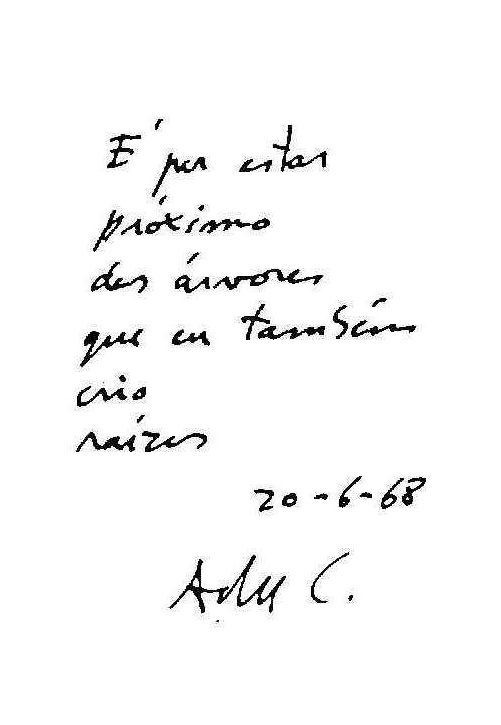 É por estar
próximo
das árvores
que eu também
crio
raízes
20-6-68
C.